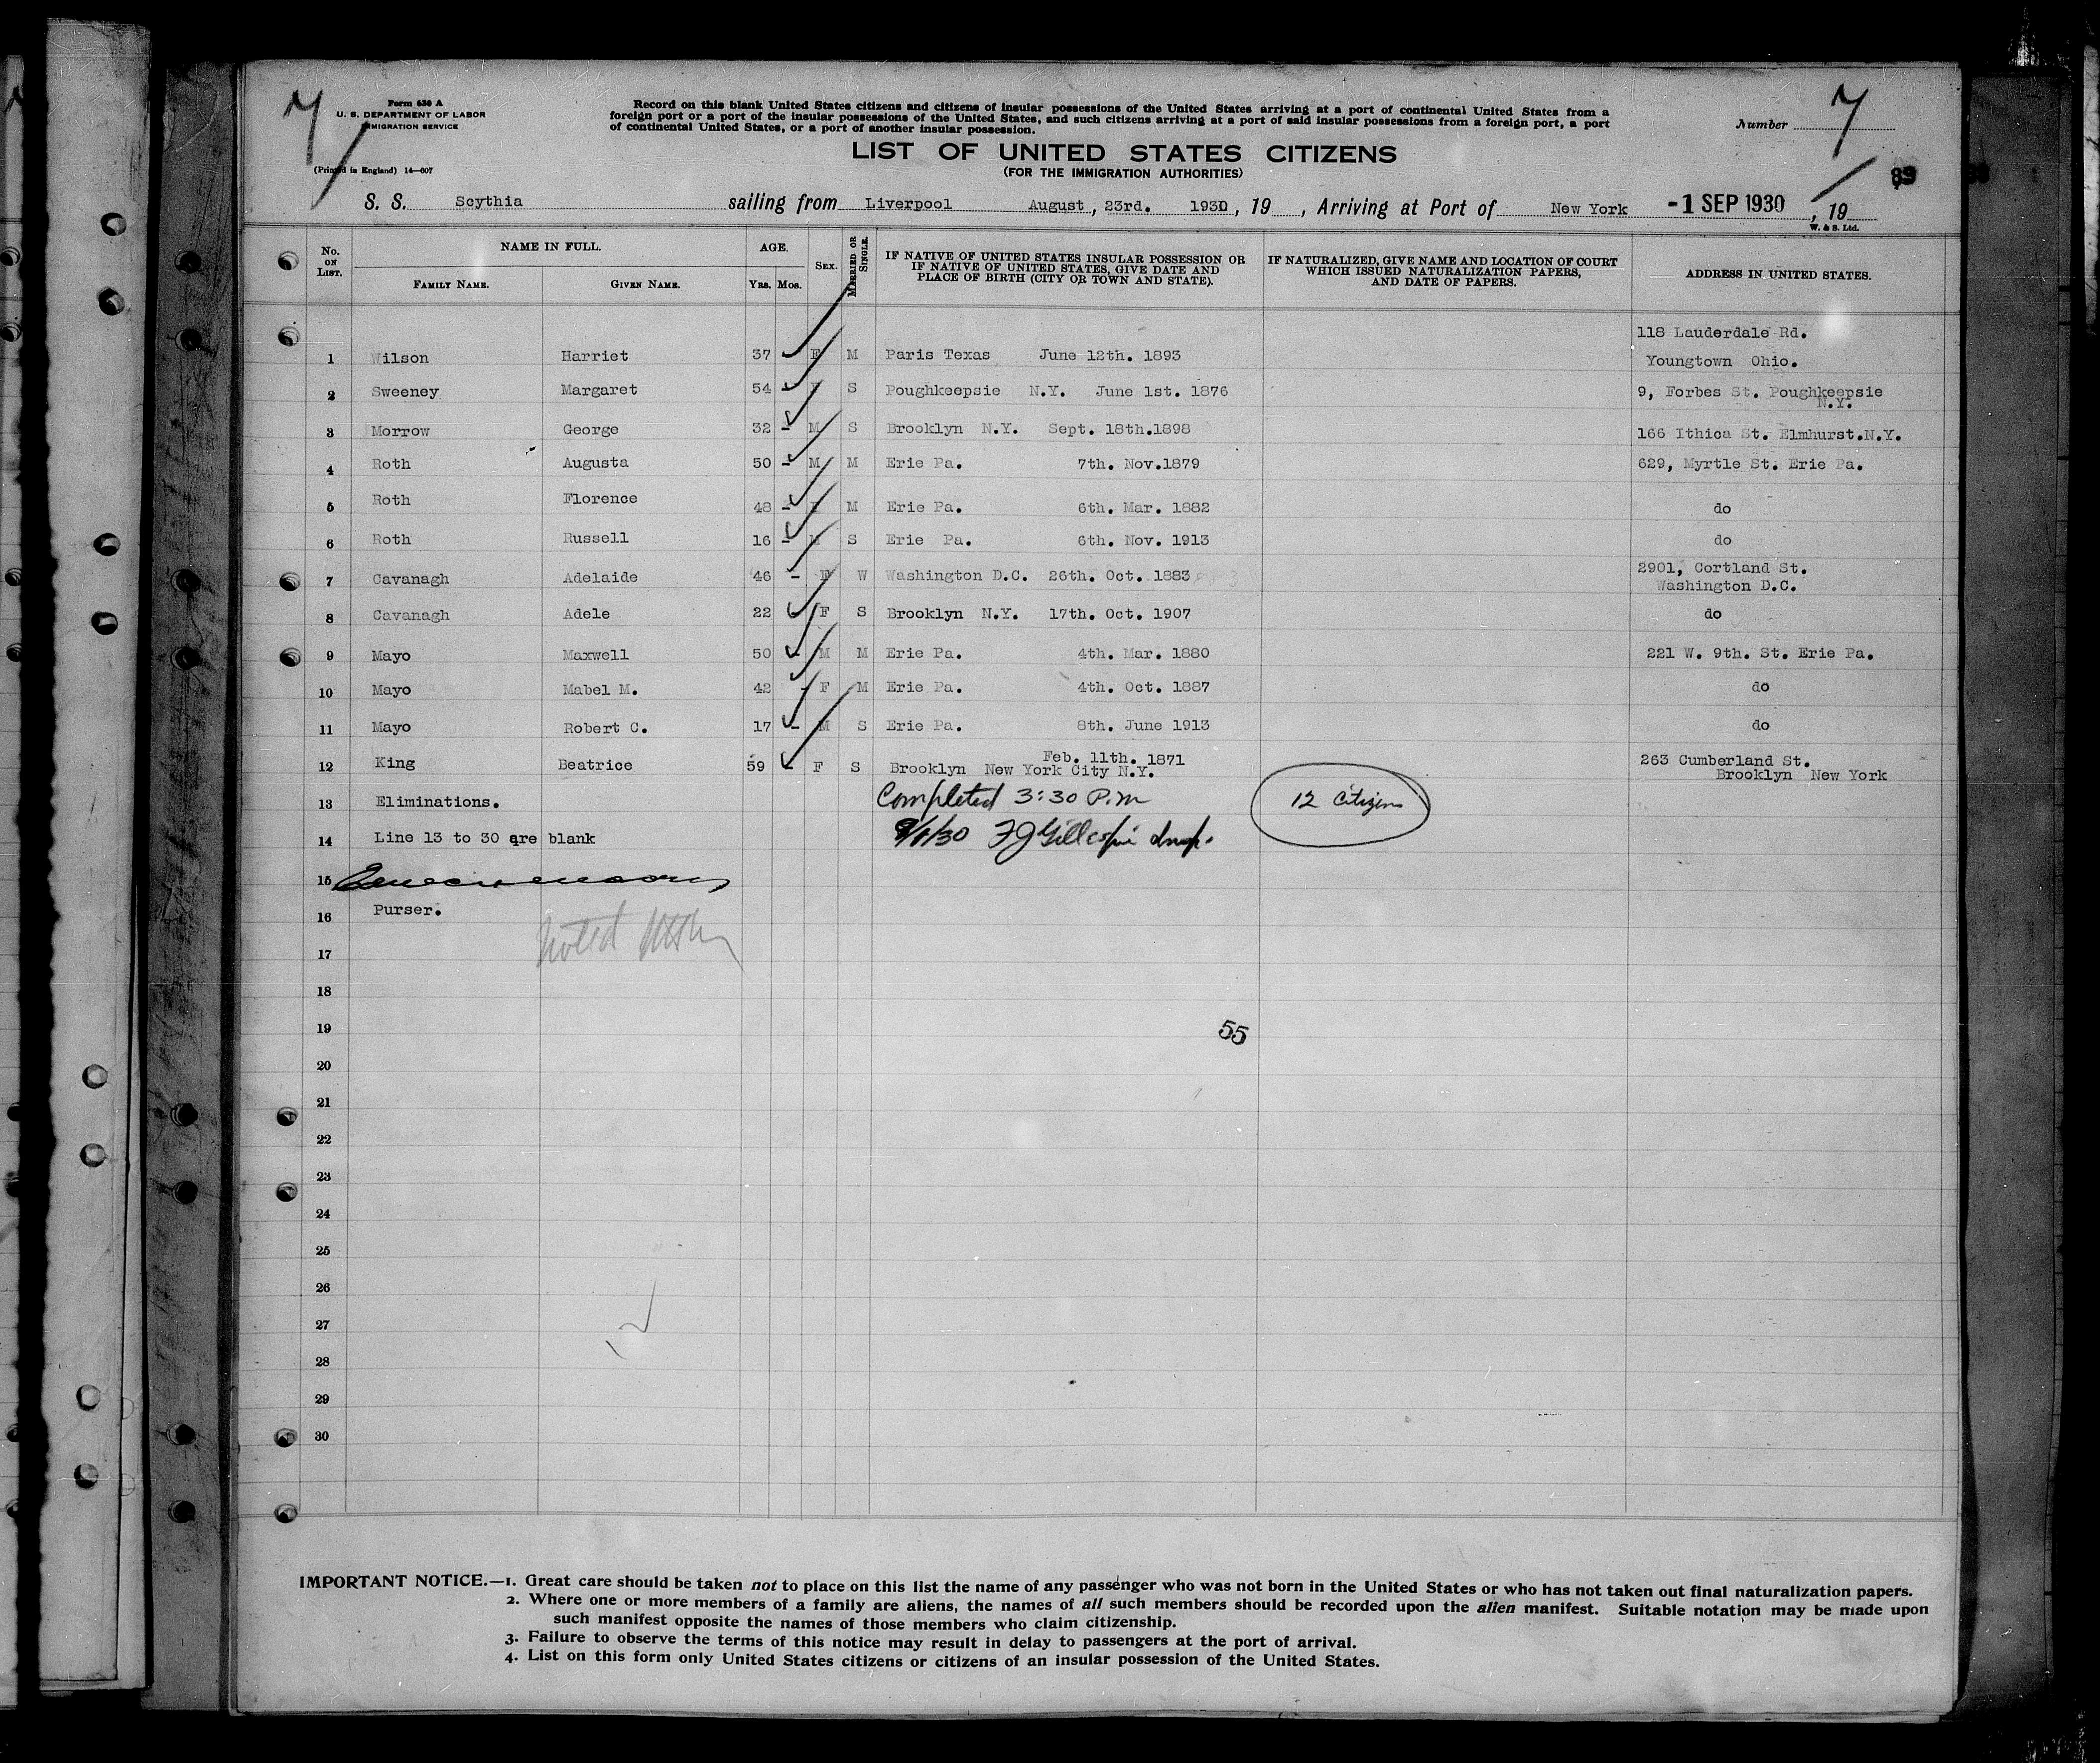 7
Form 630 A
U. S. DEPARTMENT OF LABOR
IMMIGRATION SERVICE
(Printed in England) 14—607
Record on this blank United States citizens and citizens of insular possessions of the United States arriving at a port of continental United States from a
foreign port or a port of the insular possessions of the United States, and such citizens arriving at a port of said insular possessions from a foreign port, a port
of continental United States, or a port of another insular possession.
Number 7
LIST OF UNITED STATES CITIZENS
(FOR THE IMMIGRATION AUTHORITIES)
S. S. Scythia sailing from Liverpool August, 23rd. 1930, 19 , Arriving at Port of New York -1 SEP 1930, 19
W. & S. Ltd.
No. ON LIST. NAME IN FULL. AGE. SEX. MARRIED OR SINGLE. IF NATIVE OF UNITED STATES INSULAR POSSESSION OR IF NATIVE OF UNITED STATES, GIVE DATE AND PLACE OF BIRTH (CITY OR TOWN AND STATE). IF NATURALIZED, GIVE NAME AND LOCATION OF COURT WHICH ISSUED NATURALIZATION PAPERS, AND DATE OF PAPERS. ADDRESS IN UNITED STATES.
FAMILY NAME. GIVEN NAME. YRS. MOS.
118 Lauderdale Rd.
1 Wilson Harriet 37 - F M Paris Texas June 12th. 1893 Youngtown Ohio.
2 Sweeney Margaret 54 - F S Poughkeepsie N.Y. June 1st. 1876 9, Forbes St. Poughkeepsie
N.Y.
3 Morrow George 32 - M S Brooklyn N.Y. Sept. 18th.1898 166 Ithica St. Elmhurst.N.Y.
4 Roth Augusta 50 - M M Erie Pa. 7th. Nov.1879 629, Myrtle St. Erie Pa.
5 Roth Florence 48 - F M Erie Pa. 6th. Mar. 1882 do
6 Roth Russell 16 - M S Erie Pa. 6th. Nov. 1913 do
7 Cavanagh Adelaide 46 - F W Washington D.C. 26th. Oct. 1883 2901, Cortland St.
Washington D.C.
8 Cavanagh Adele 22 - F S Brooklyn N.Y. 17th. Oct. 1907 do
9 Mayo Maxwell 50 - M M Erie Pa. 4th. Mar. 1880 221 W. 9th. St. Erie Pa.
10 Mayo Mabel M. 42 - F M Erie Pa. 4th. Oct. 1887 do
11 Mayo Robert C. 17 - M S Erie Pa. 8th. June 1913 do
Feb. 11th. 1871 263 Cumberland St.
12 King Beatrice 59 - F S Brooklyn New York City N.Y. Brooklyn New York
13 Eliminations. Completed 3:30 P.m 12 Citizens
14 Line 13 to 30 are blank 9/1/30 FJ Gillespie Insp.
15
16 Purser.
Noted
17
18
19 55
20
21
22
23
24
25
26
27
28
29
30
IMPORTANT NOTICE.—1. Great care should be taken not to place on this list the name of any passenger who was not born in the United States or who has not taken out final naturalization papers.
2. Where one or more members of a family are aliens, the names of all such members should be recorded upon the alien manifest. Suitable notation may be made upon
such manifest opposite the names of those members who claim citizenship.
3. Failure to observe the terms of this notice may result in delay to passengers at the port of arrival.
4. List on this form only United States citizens or citizens of an insular possession of the United States.